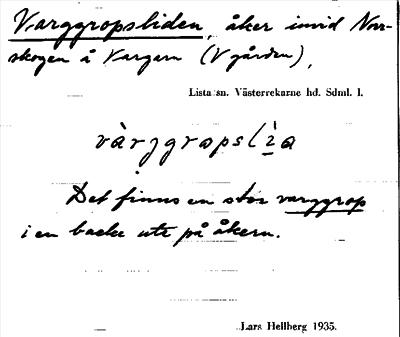 Varggropsliden, åker invid Norr-
skogen å Vargarn (V gården),
Lista sn. Västerrekarne hd. Sdml. l.
vàrjgrọpslìa
Det finns en stor varggrop
i en backe ute på åkern.
Lars Hellberg 1935.